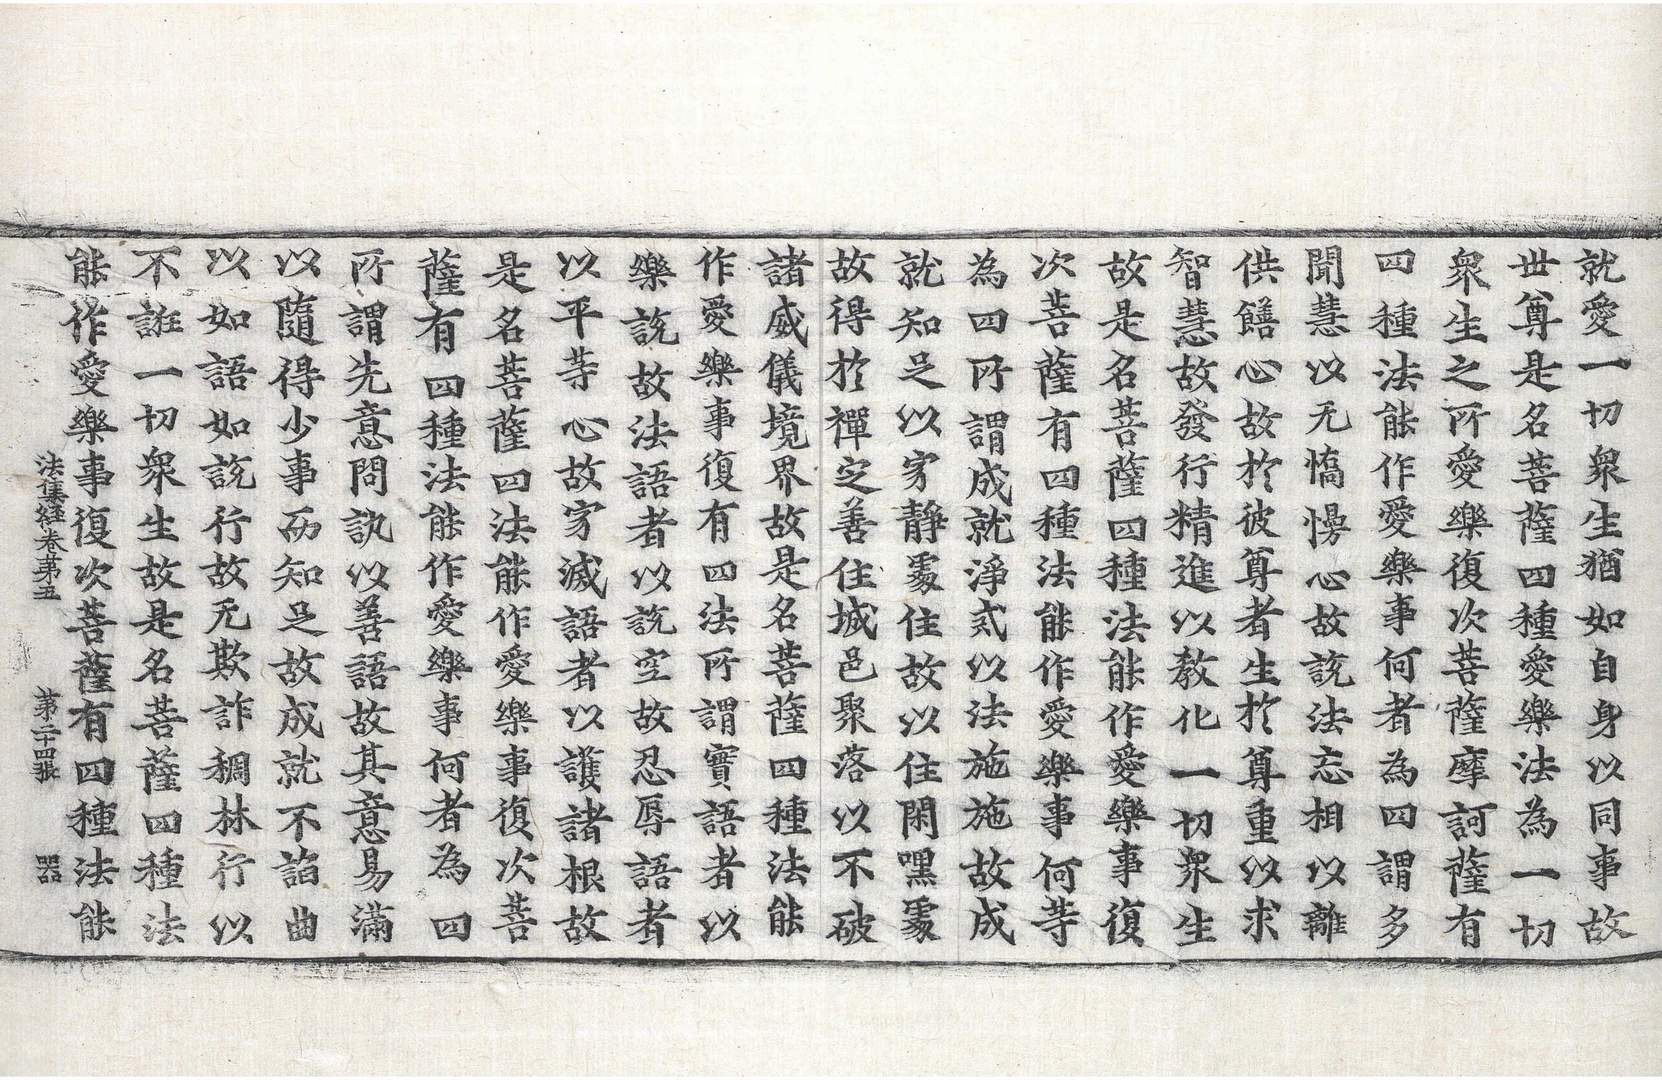 就愛一切衆生猶如自身以同事故
世尊是名菩薩四種愛樂法為一切
衆生之所愛樂復次菩薩摩訶薩有
四種法能作愛樂事何者為四謂多
聞慧以无憍慢心故說法忘相以離
供饍心故於彼尊者生於尊重以求
智慧故發行精進以教化一切衆生
故是名菩薩四種法能作愛樂事復
次菩薩有四種法能作愛樂事何等
為四所謂成就淨戒以法施施故成
就知足以穷靜䖏住故以住閑嘿䖏
故得於禪定善住城邑聚落以不破
諸威儀境界故是名菩薩四種法能
作愛樂事復有四法所謂實語者以
樂說故法語者以說空故忍辱語者
以平等心故穷滅語者以護諸根故
是名菩薩四法能作愛樂事復次菩
薩有四種法能作愛樂事何者為四
所謂先意問訊以善語故其意易滿
以隨得少事而知足故成就不諂曲
以如語如說行故无欺詐稠林行以
不誑一切衆生故是名菩薩四種法
能作愛樂事復次菩薩有四種法能
法集經卷第五　第二十四張　器